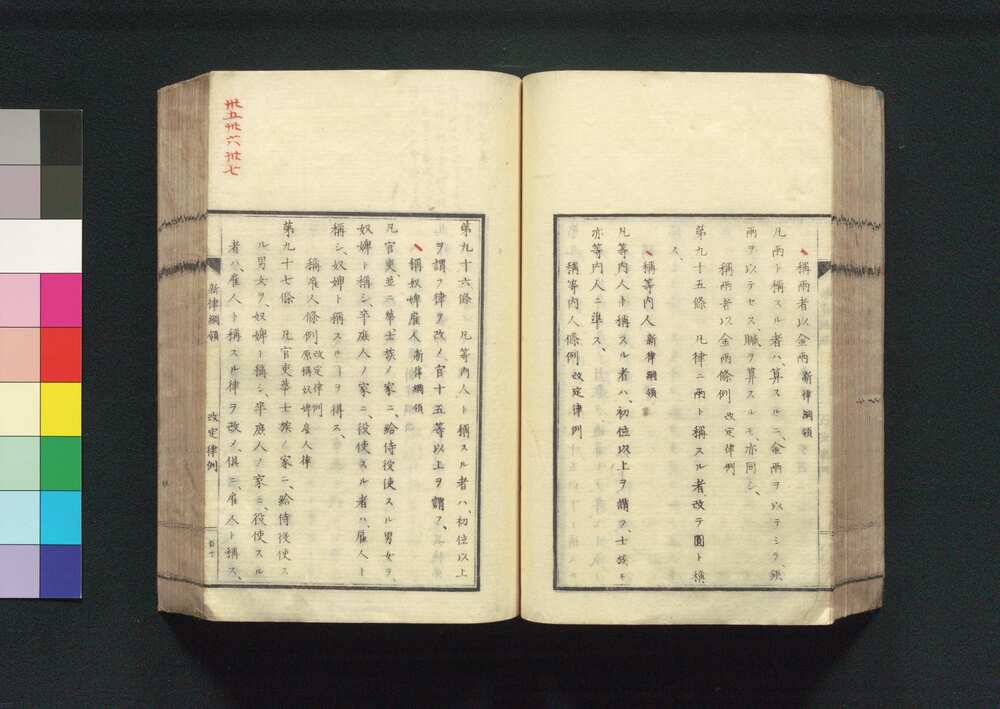 稱兩者以金兩 新律綱領
凡兩ト稱スル者ハ、算スルニ、金兩ヲ以テシテ、銀
兩ヲ以テセス、贓ヲ算スルモ、亦同シ、
稱兩者以金兩條例 改定律例
第九十五條 凡律ニ兩ト稱スル者、改テ圓ト稱
ス、
稱等内人 新律綱領
凡等内人ト稱スル者ハ、初位以上ヲ謂フ、士族モ
亦等内人ニ準ス、
稱等内人條例 改定律例
第九十六條 凡等内人ト稱スル者ハ、初位以上
ヲ謂フ律ヲ改メ、官十五等以上ヲ謂フ、
稱奴婢雇人 新律綱領
凡官吏、並ニ華士族ノ家ニ、給侍役使スル男女ヲ、
奴婢ト稱シ、平庶人ノ家ニ、役使スル者ハ、雇人ト
稱シ、奴婢ト稱スルヿヲ得ス、
稱雇人條例 改定律例 原稱奴婢雇人律
第九十七條 凡官吏華士族ノ家ニ、給侍役使ス
ル男女ヲ、奴婢ト稱シ、平庶人ノ家ニ、役使スル
者ハ、雇人ト稱スル律ヲ改メ、俱ニ雇人ト稱ス、
新律綱領 改定律例
卅五卅六卅七